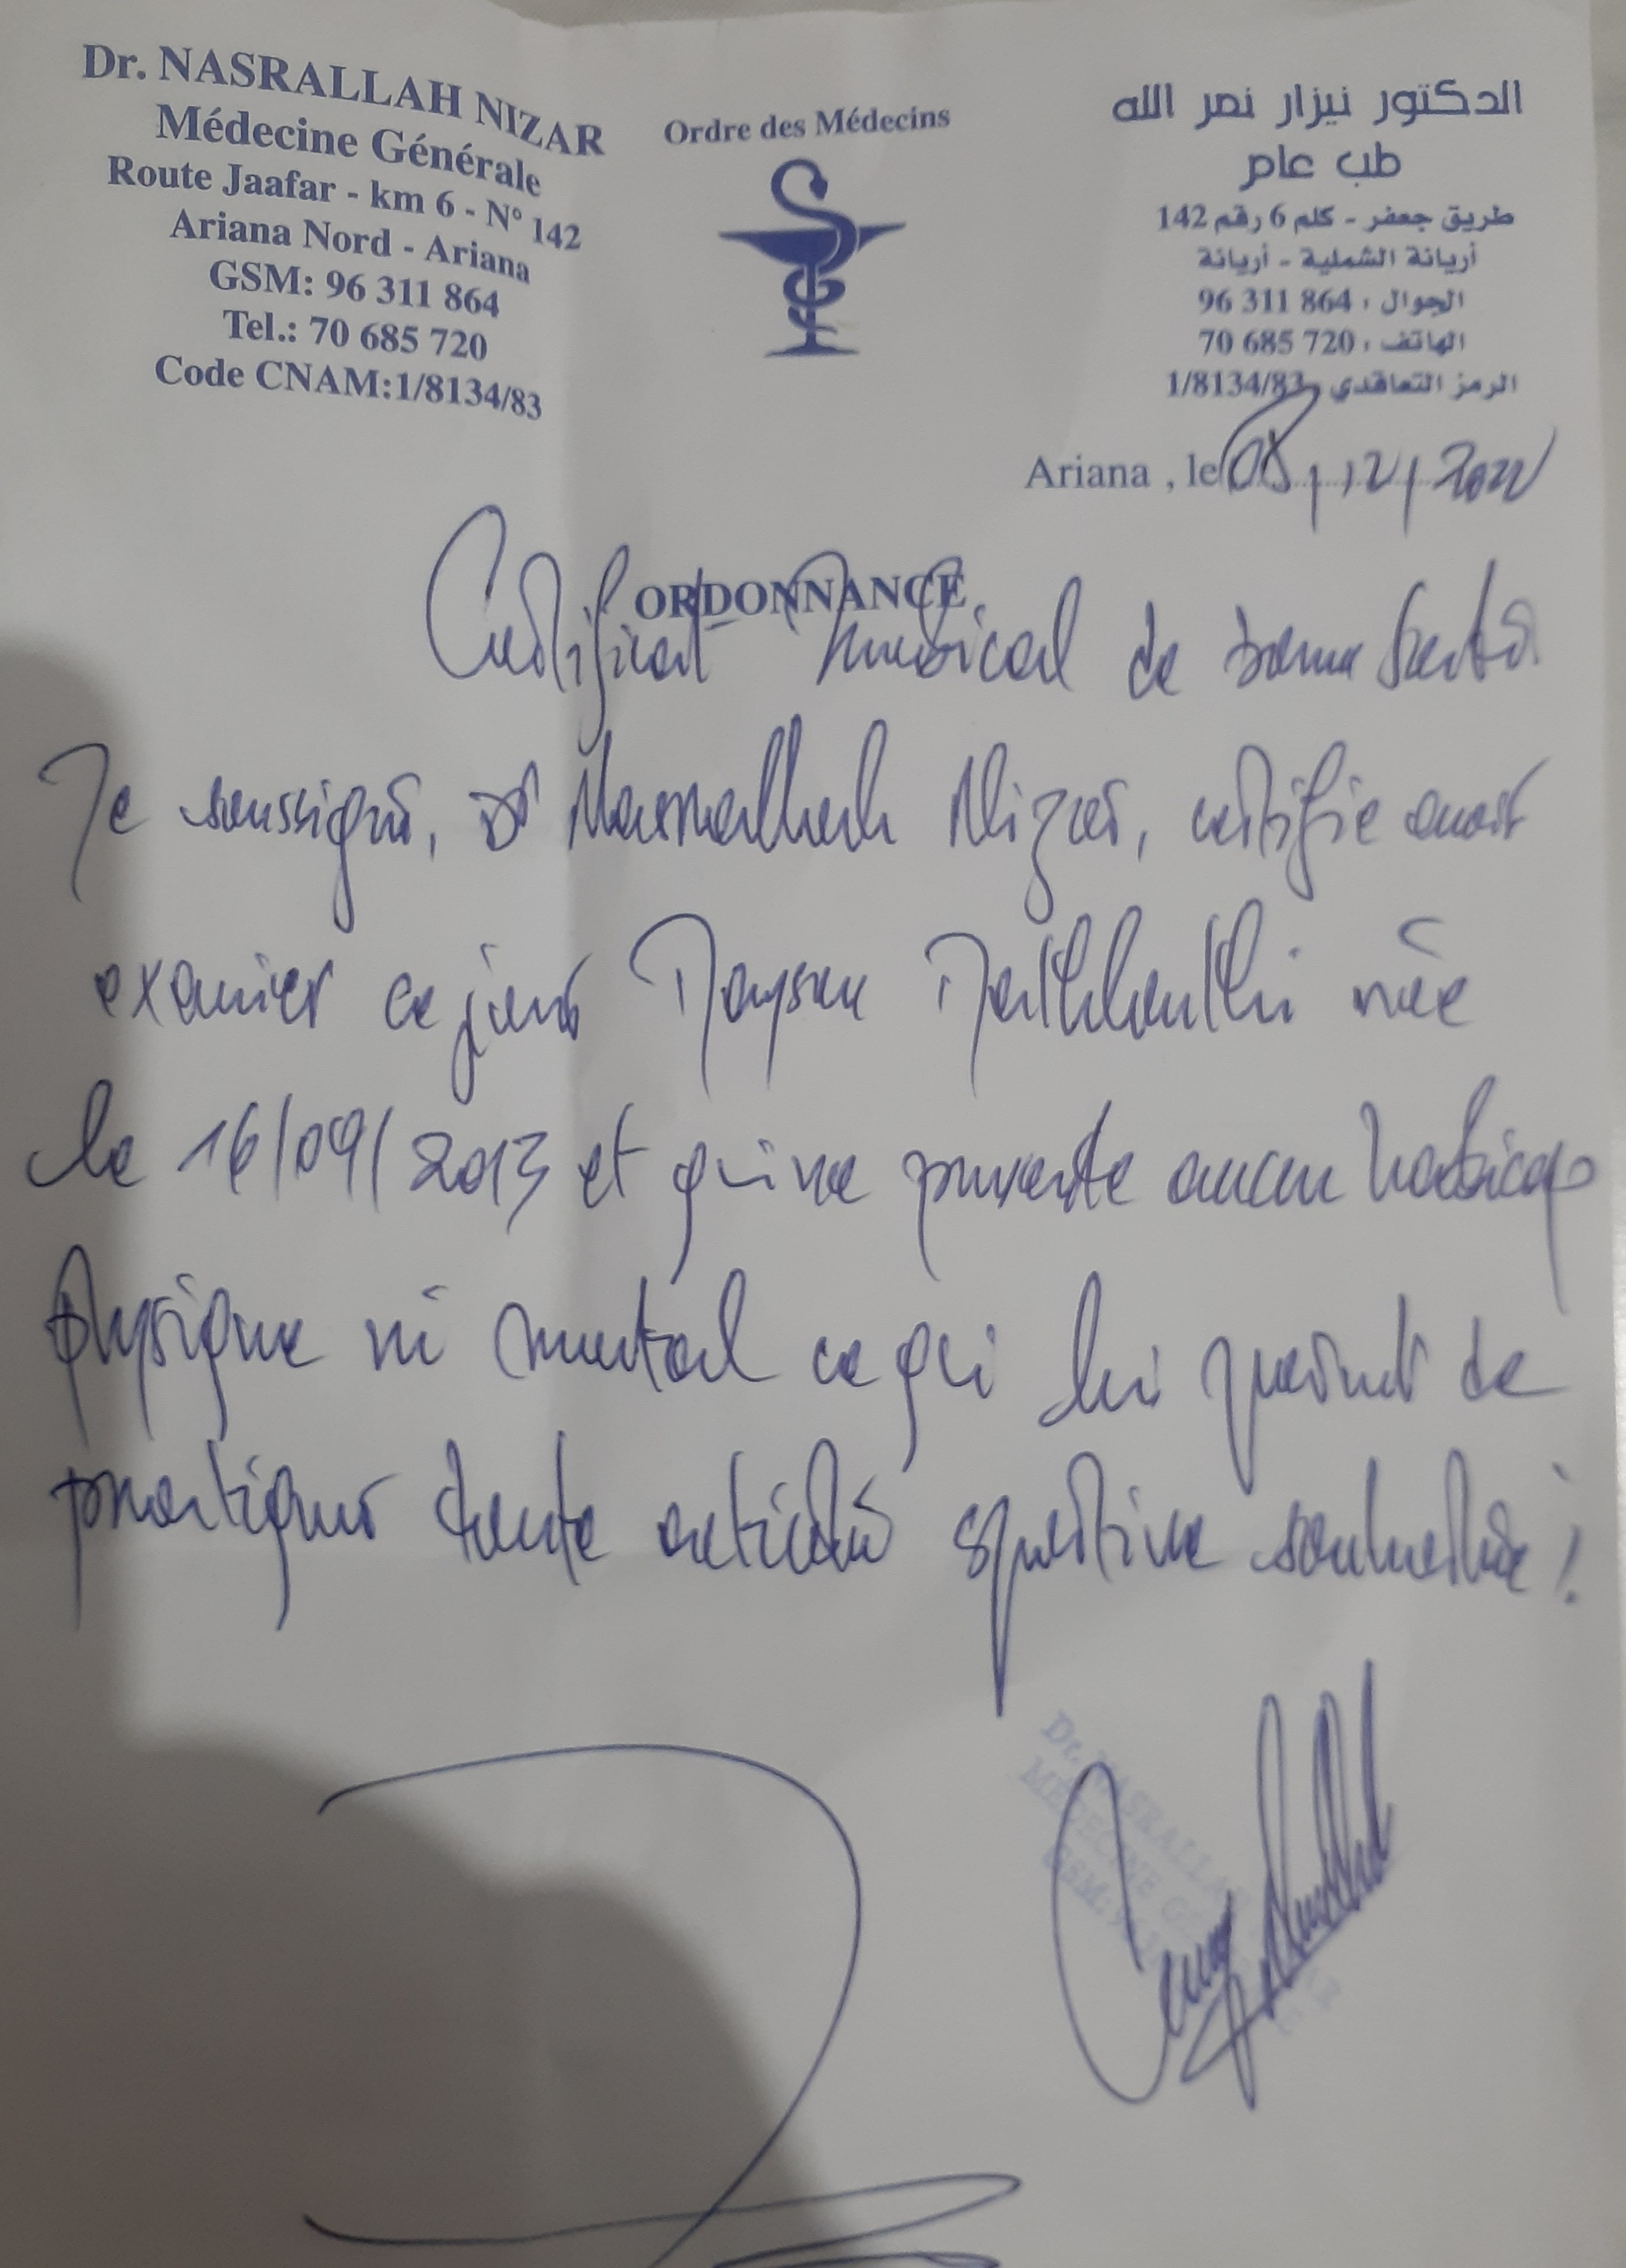 Dr. NASRALLAH NIZAR
Médecine Générale
Route Jaafar - km 6 - N° 142
Ariana Nord - Ariana
GSM: 96 311 864
Tel.: 70 685 720
Code CNAM:1/8134/83
Ordre des Médecins
الدكتور نيزار نصر الله
طب عام
طريق جعفر - كلم 6 رقم 142
أريانة الشملية - أريانة
الجوال : 96 311 864
الهاتف : 70 685 720
الرمز التعاقدي : 1/8134/83
Ariana , le 08/12/2022
ORDONNANCE
Certificat médical de bonne santé
Je soussigné, Dr Nasrallah Nizar, certifie avoir
examiner ce jour née
le 16/09/2013 et qui ne présente aucun hadicap
physique ni mental ce qui lui permet de
pratiquer toute activité sportive souhaitée !
Dr. NASRALLAH
MEDECINE
GSM: